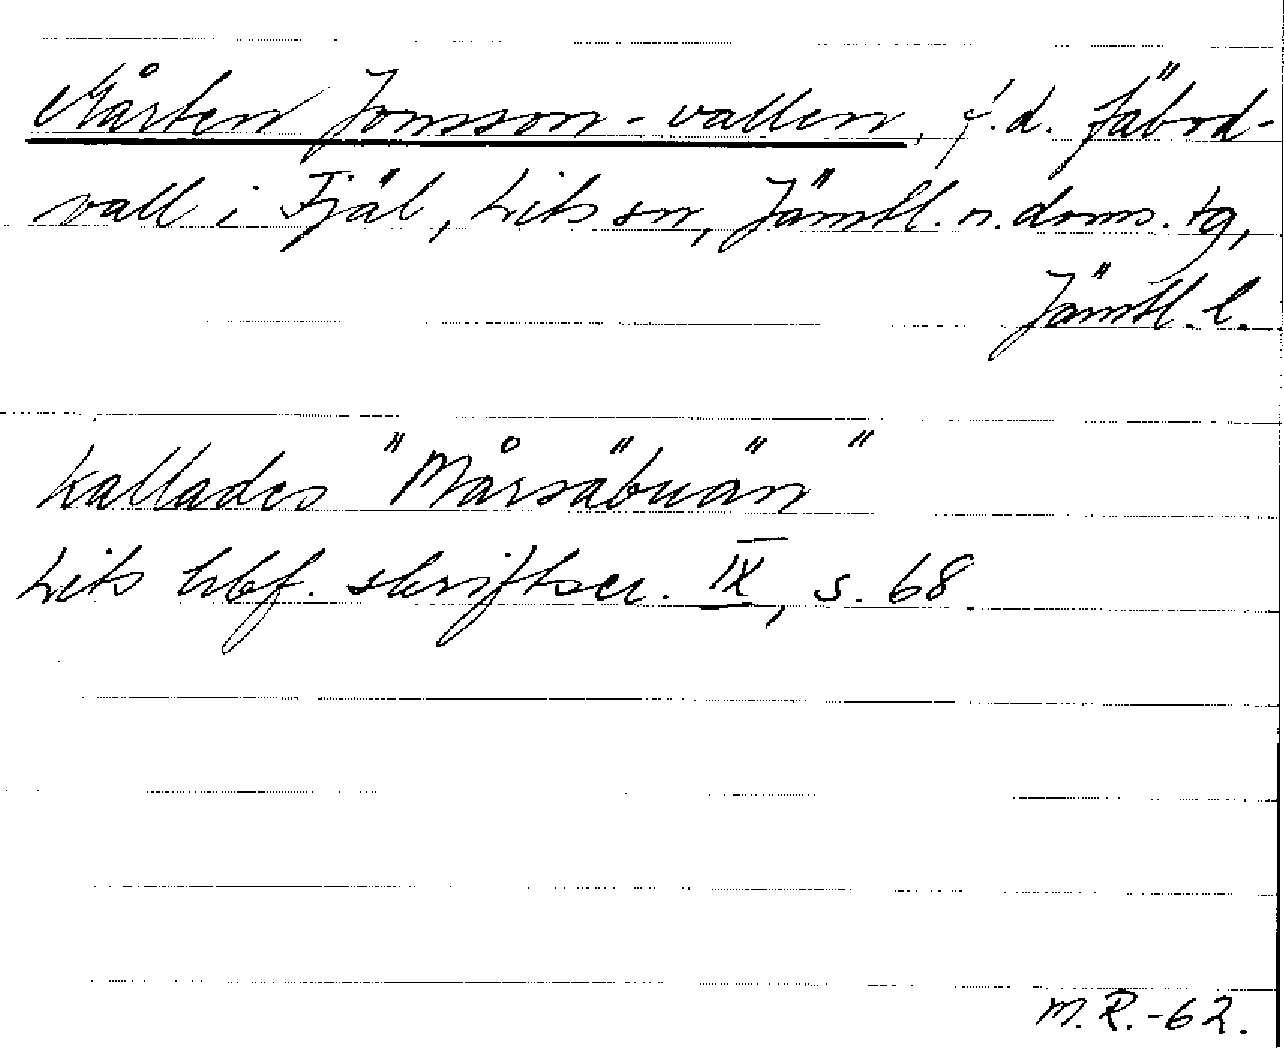 Mårten Jonsson-vallen, f.d. fäbod-
vall i Fjäl, Lits sn, Jämtl. n. doms. tg,
Jämtl. l.
kallades "Mårsäbuän"
Lits hbf. skriftser. IX, s. 68
M.R.-62.